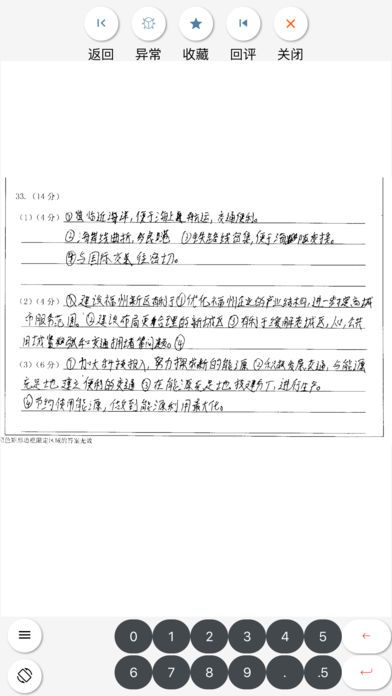 返回 异常 收藏 回评 关闭
33. (14 分)
(1)(4 分) ①临近海洋,便于海上航运,交通便利。
②海岸线曲折,多良港 ③铁路线密集,便于海陆联运
④与国际交流往来密切。
(2)(4 分) ①建设福州新区有利于①优化福州企业的产业结构,进一步提高城
市服务范围 ②建设布局更合理的新城区 ③有利于缓解老城区人口,公共
用地紧张和交通拥堵等问题。④
(3)(6 分) ①加大科技投入,努力探索新的能源 ②积极发展交通,与能源
充足地建立便利的交通 ③在能源充足地投建工厂,进行生产。
④节约使用能源,做到能源利用最大化。
色矩形边框限定区域的答案无效
0 1 2 3 4 5
6 7 8 9 . .5